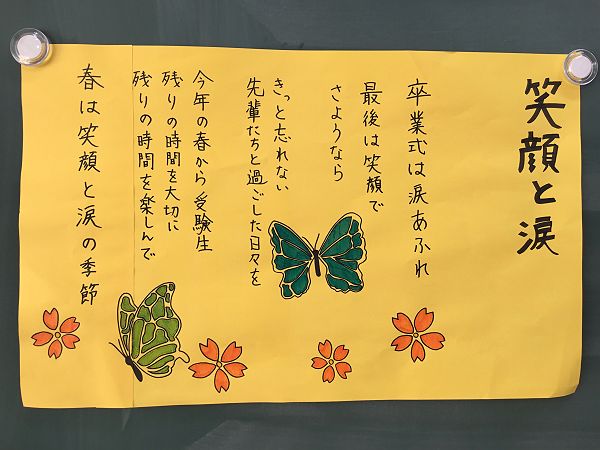 笑顔と涙
卒業式は涙あふれ
最後は笑顔で
さようなら
きっと忘れない
先輩たちと過ごした日々を
今年の春から受験生
残りの時間を大切に
残りの時間を楽しんで
春は笑顔と涙の季節